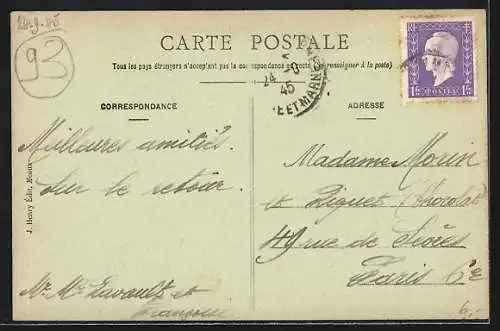 24-9-45
93
CARTE POSTALE
Tous les pays étrangers n'acceptent pas la correspondance au recto (se renseigner à la poste)
CORRESPONDANCE
ADRESSE
24
45
ET MARNE
RF
POSTES
Meilleures amitiés
Sur le retour.
Mr Mme Lavault et
Françoise
Madame Morin
Piquet Chocolat
49 rue de Sèvres
Paris 6e
J. Henry Édit, Meaux